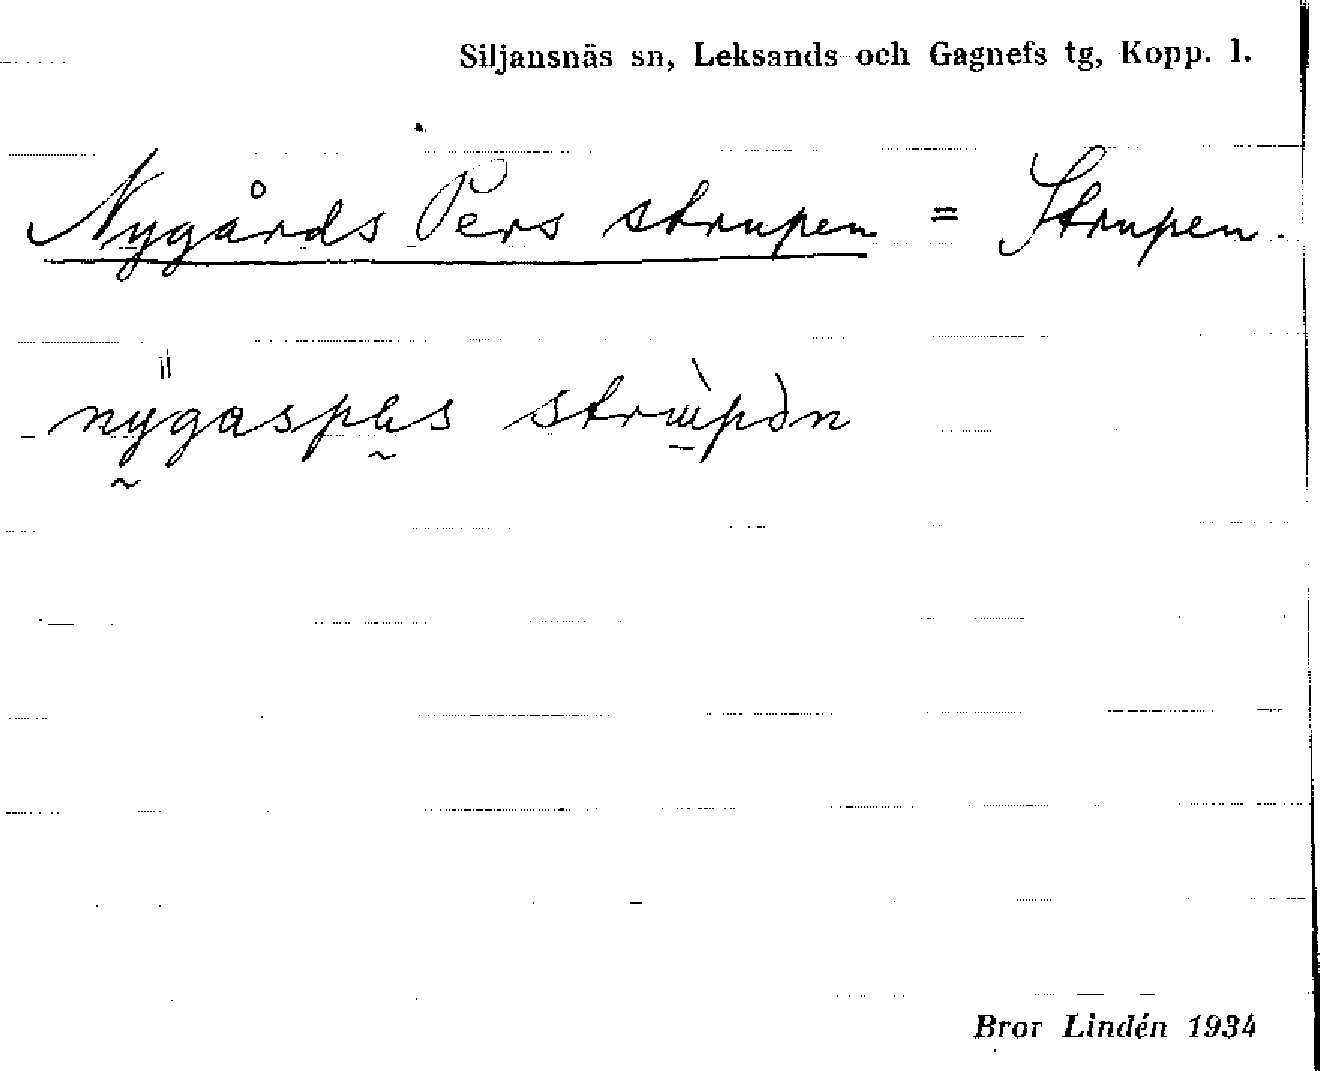 Siljansnäs sn, Leksands och Gagnefs tg, Kopp. l.
Nygårds Pers strupen = Strupen.
Bror Lindén 1934